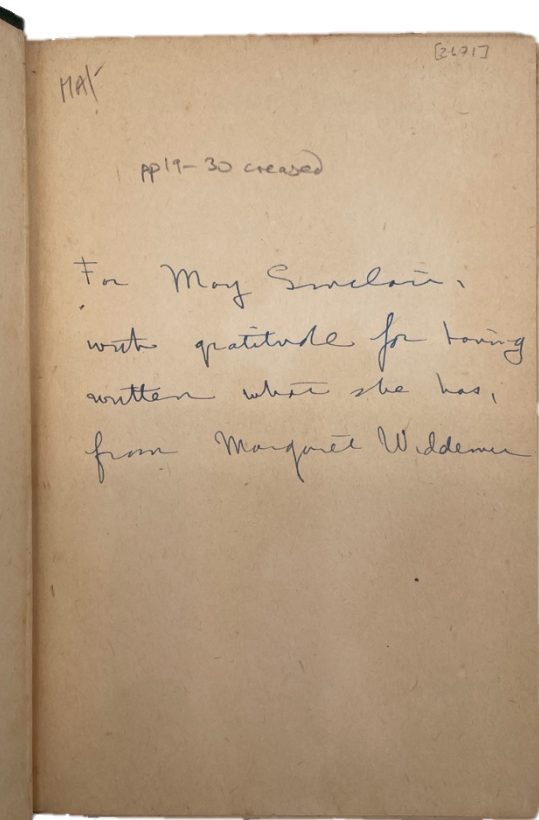 [2671]
pp19-30 creased
For May Sinclair,
with gratitude for having
written what she has,
from Margaret Widdemer